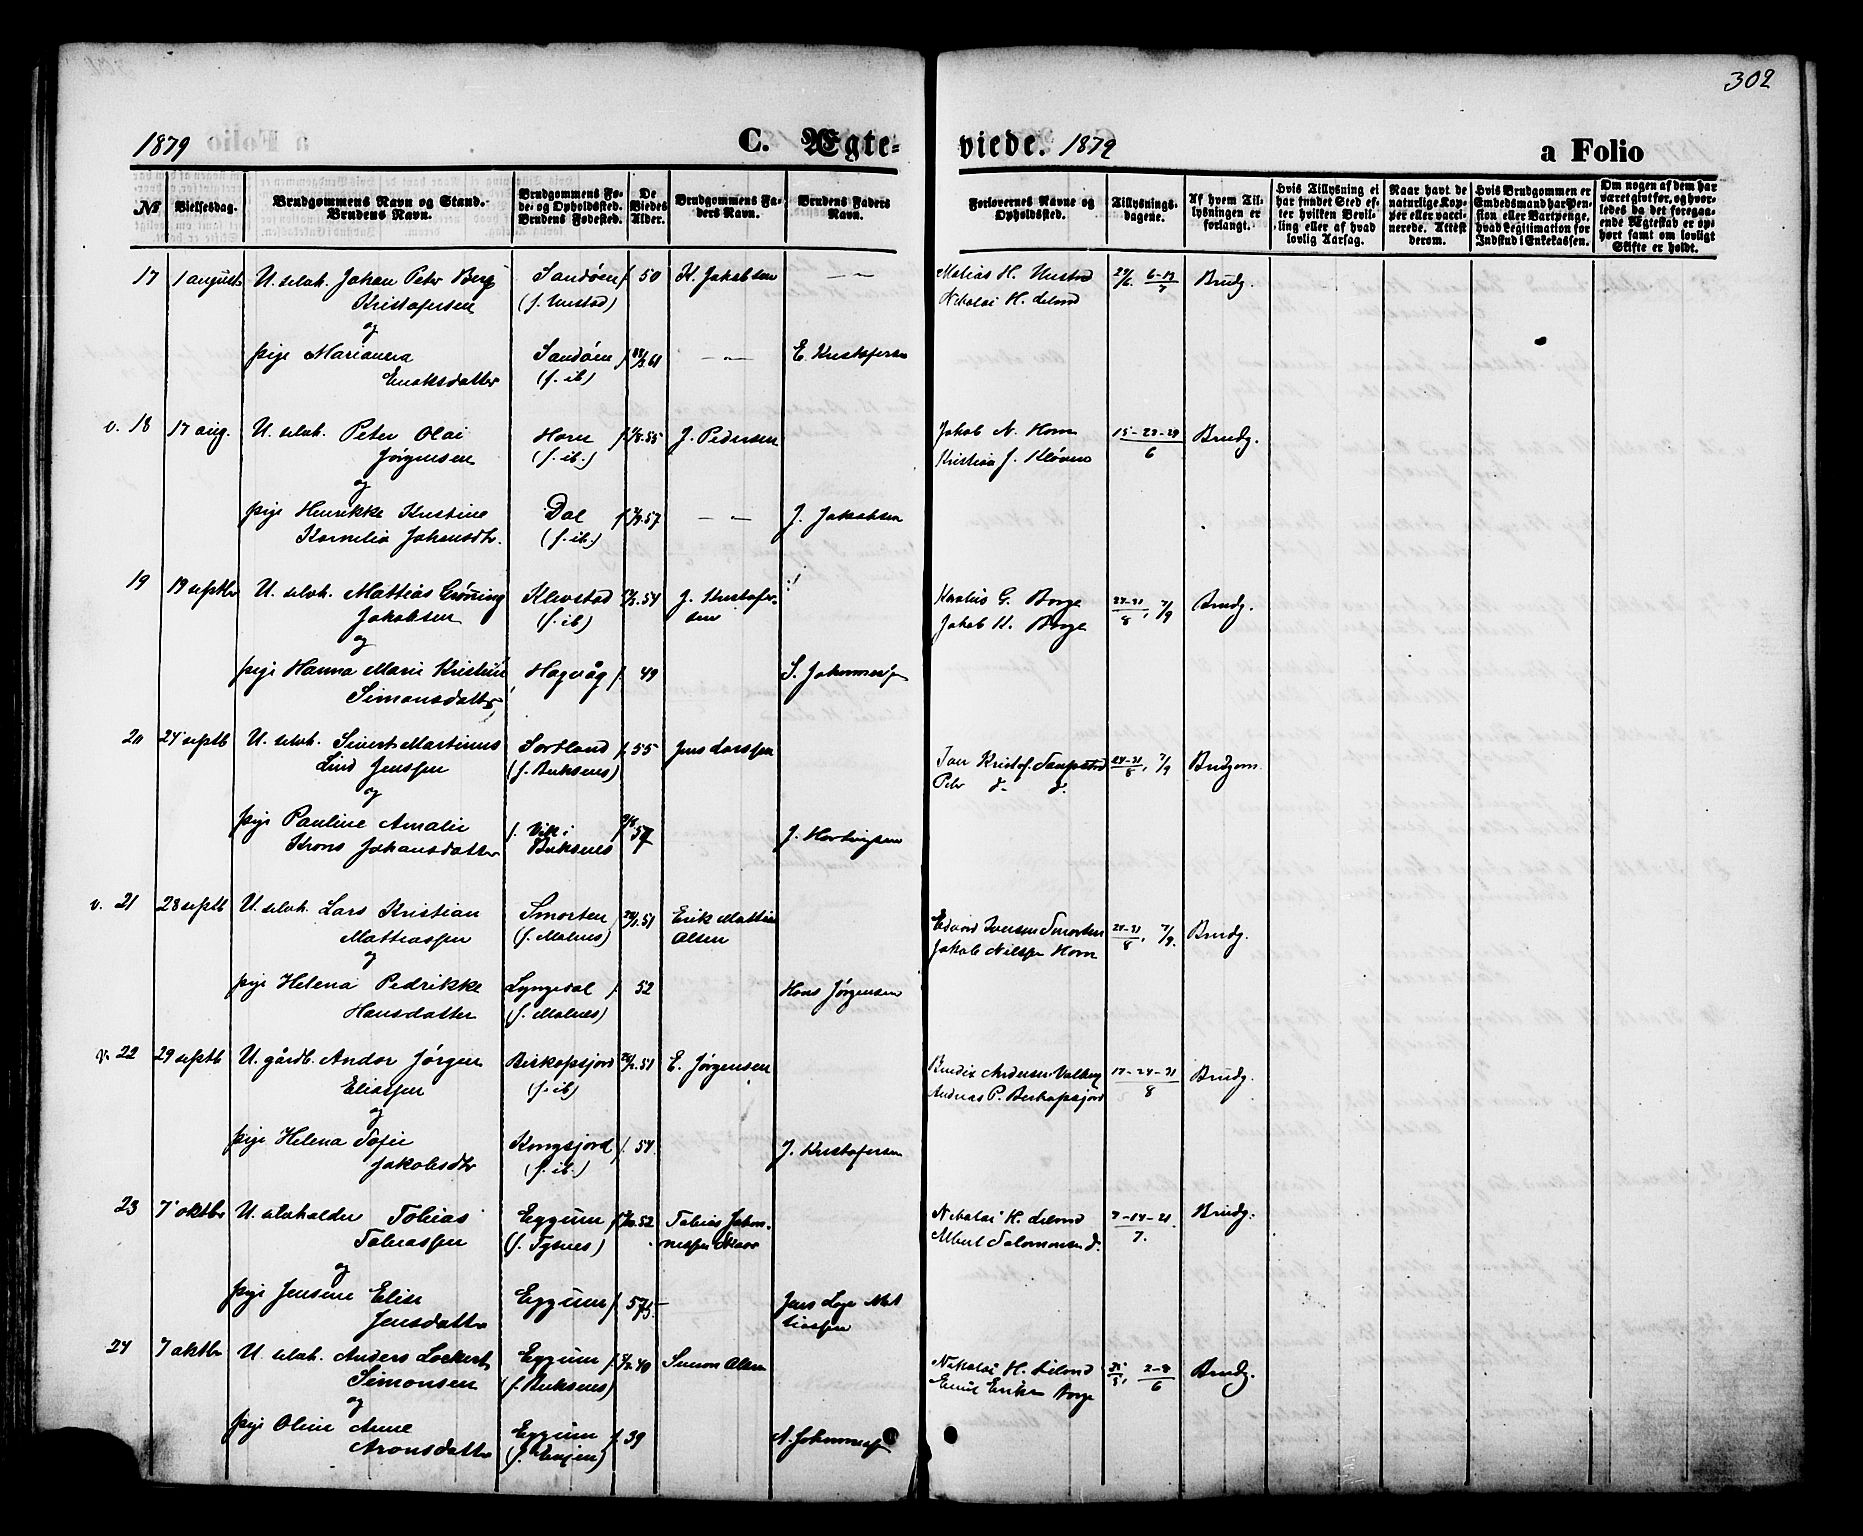 302
1879 C. Ægte- viede. 1879 a Folio
№ Vielsesdag. Brudgommens Navn og Stand. Brudens Navn. Brudgommens Føde- og Opholdssted. Brudens Fødested. De Viedes Alder. Brudgommens Faders Navn. Brudens Faders Navn. Forlovernes Navne og Opholdssted. Tillysningsdagene. Af hvem Tillysningen er forlangt. Hvis Tillysning ei har fundet Sted efter hvilken Bevilling eller af hvad lovlig Aarsag. Naar havt de naturlige Kopper eller vaccinerede. Attest derom. Hvis Brudgommen er Embedsmand har Pension eller Vartpenge, hvad Legitimation for Indskud i Enkekassen. Om nogen af dem har været gift før, og hvorledes da det foregaaende Ægteskab er ophørt samt om lovligt Skifte er holdt.
17 1 august U. selvh. Johan Peter Berg Sandøen f. 50 K. Jakobsen — " — Matias H. Unstad 29/6. 6-13 Brudg.
Kristofersen (f. Unstad) Nikolai H. Liland 7
og
pige Marianna Sandøen f. 61 — " — E. Kristofersen
Enoksdatter (f. ib)
v. 18 17 aug. U. selvh. Peter Olai Horn 55 J. Pedersen Jakob N. Horn 15-22-29 Brudg.
Jørgensen (f. ib.) Kristian J. Kløven 6
og
pige Henrikke Kristine Dal 57 — " — J. Jakobsen
Kornelia Johansdtr. (f. ib.)
19 19 septbr U. selvh. Mattias Grøning Klevstad 54 J. Kristofer- 24-31 7/9 Brudg.
Jakobsen (f. ib) sen Jakob K. Borge 8
og
pige Hanna Marie Kristine Hagvåg f. 49 S. Johannesen
Simonsdatter
20 24 septb U. selvh. Sivert Martinus Sortland f. 55 Jens Larssen 24-31 7/9 Brudgom.
Lind Jenssen (f. Buksnes) Peter d. d. 8
og
pige Pauline Amalie f. Vik i 57 J. Hartvigsen
Krons Johansdatter Buksnes
v. 21 28 septb U. selvh. Lars Kristian Smorten 51 Erik Mattias Edvard Iversen Smorten 24-31 7/9. Brudg.
Mattiassen (f. Malnes) Olsen Jakob Nilssen Horn 8
og
pige Helena Pedrikke Lyngedal f. 52 Hans Jørgensen
Hansdatter (f. Malnes)
v. 22 29 septb U. gårdb. Andor Jørgen Biskopsjord 51 E. Jørgensen Bendix Andersen Valberg 17-24-31 Brudg.
Eliassen (f. ib) Andreas P. Biskopsjord 8
og
pige Helena Sofie Kongsjord f. 54 J. Kristofersen
Jakobsdtr (f. ib.)
23 7 oktbr U. selvholder Tobias Eggum 52 Tobias Johan- Nikolai H. Liland 7-14-21. Brudg.
Tobiassen (f. Tysnes) nessen Albert Salomonsen d. 7.
og
pige Jensine Elise Eggum f. Jens Mat
Jensdatter tiassen
24 7 oktbr U. selvh. Anders Lockert Eggum 40 Simon Olsen Nikolai H. Liland 2-8 Brudg.
Simonsen (f. Buksnes) Emil Eriksen Borge 6
og
pige Oline Anne Eggum f. 39 A. Johannessen
Aronsdatter